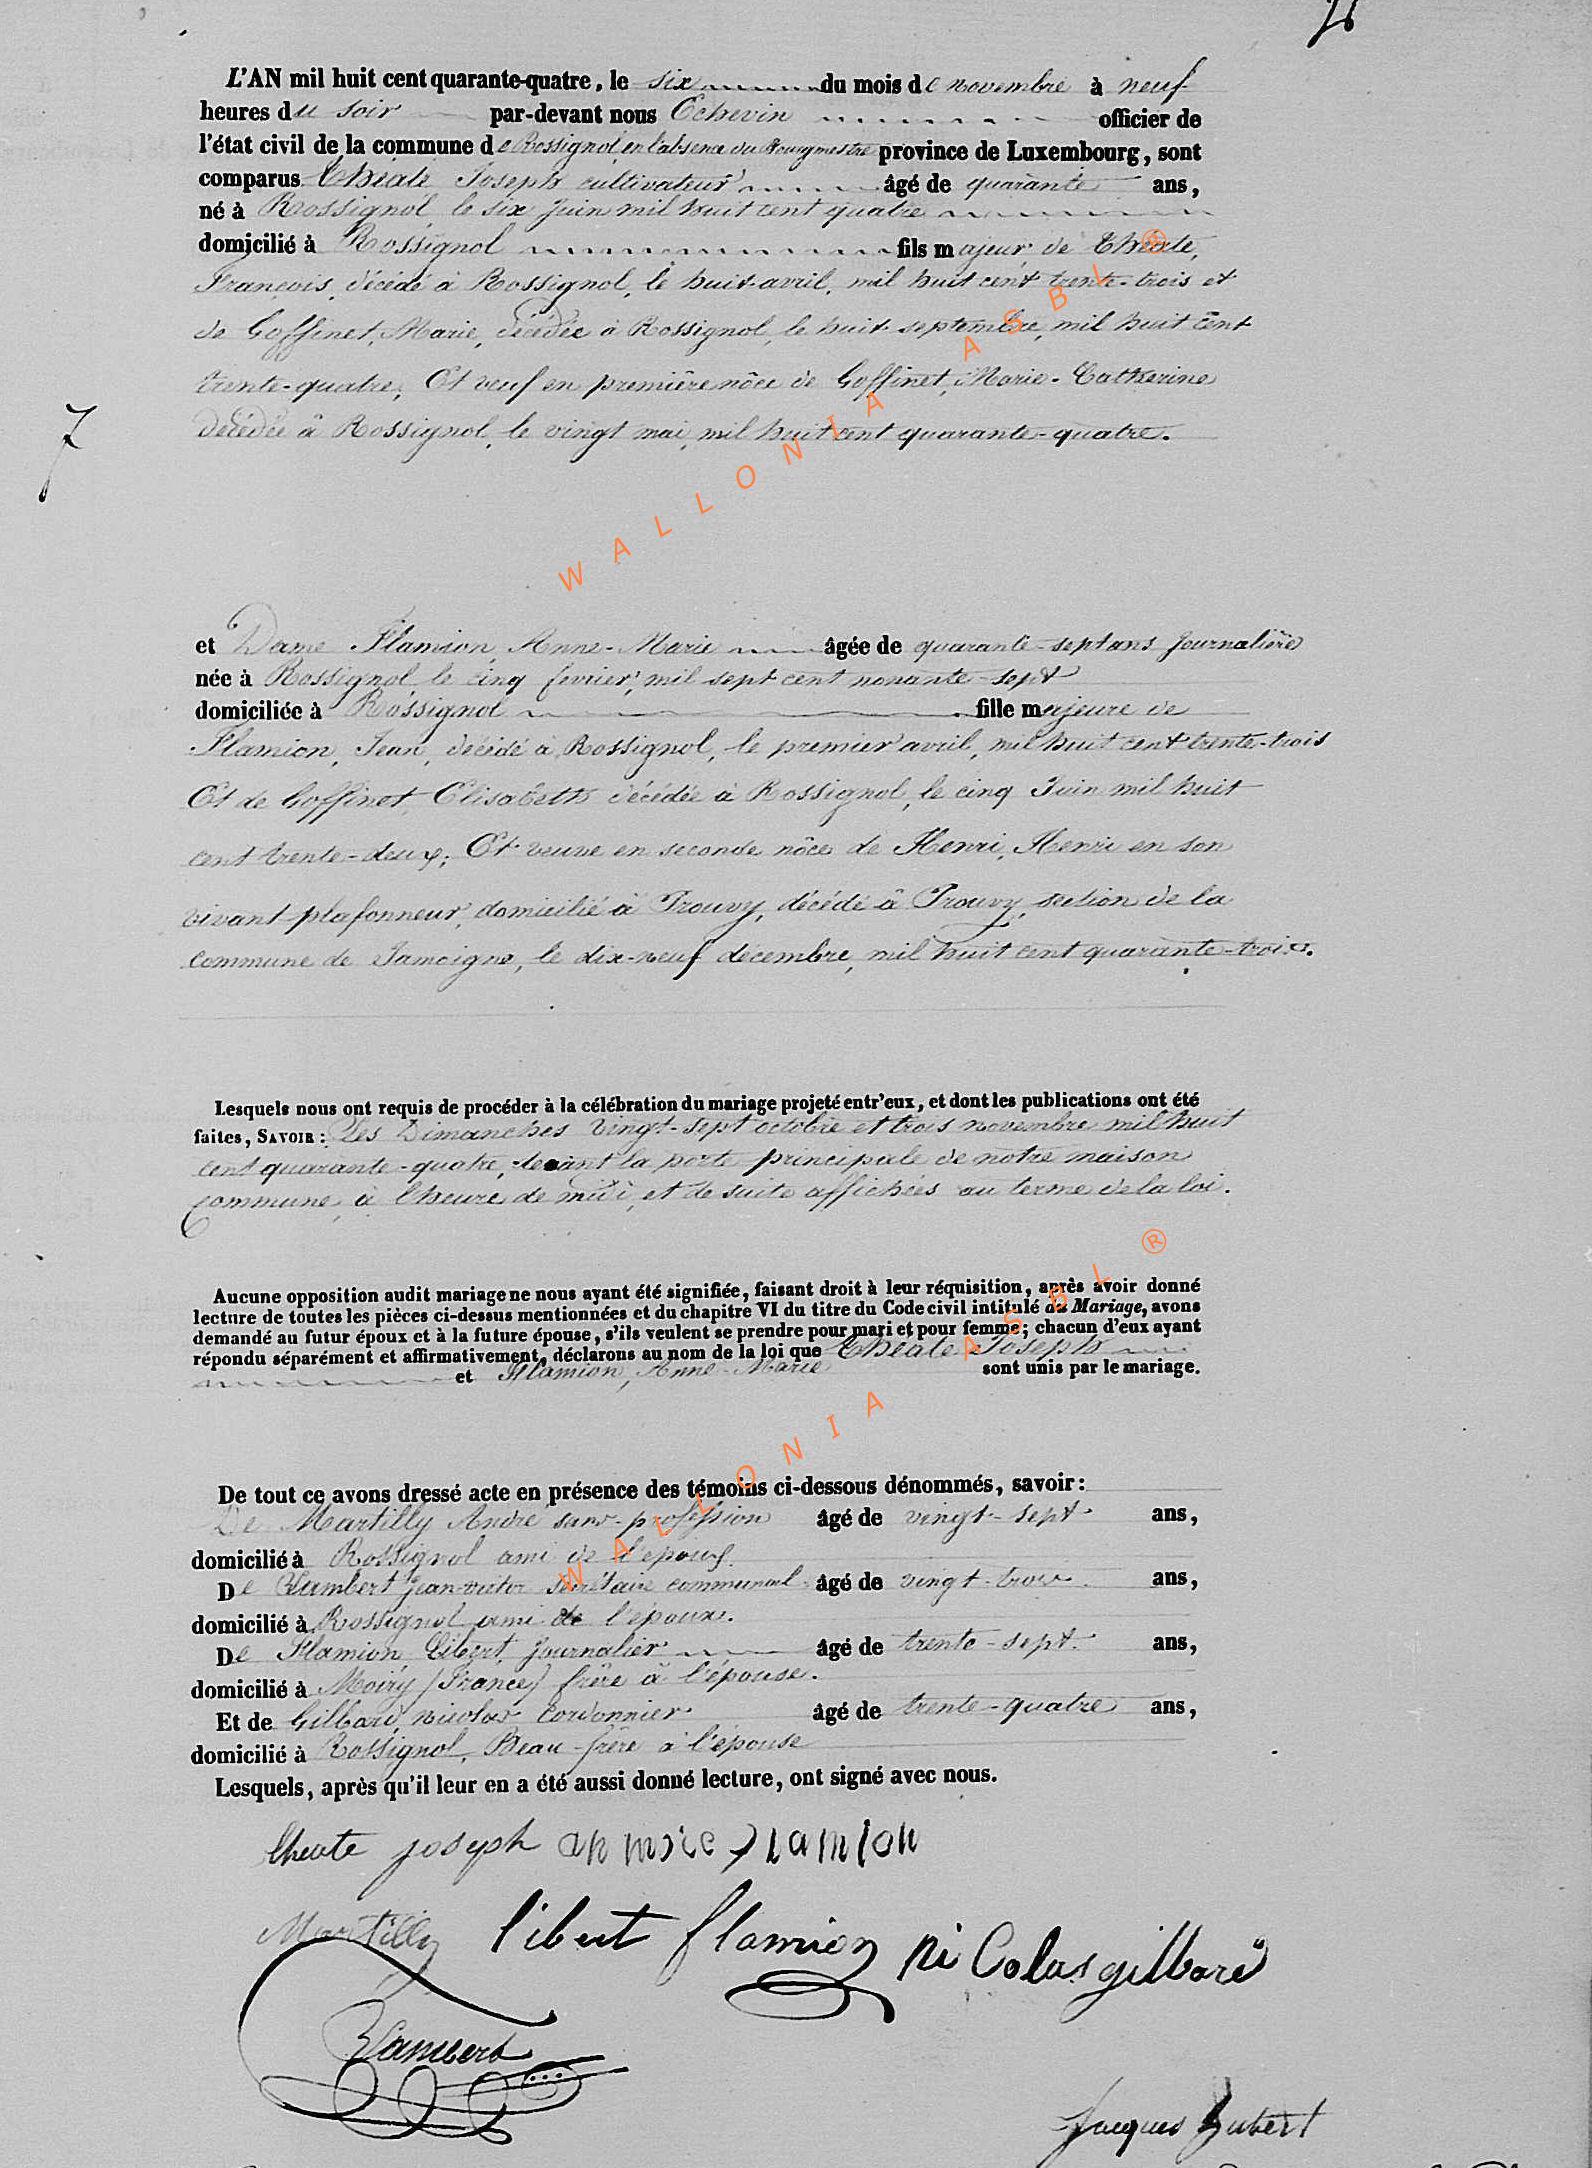 L'AN mil huit cent quarante-quatre, le six du mois de novembre à neuf
heures du soir par-devant nous Echevin officier de
l'état civil de la commune de Rossignol, en l'absence du Bourgmestre province de Luxembourg, sont
comparus Théate Joseph cultivateur âgé de quarante ans,
né à Rossignol le six Juin mil huit cent quatre
domicilié à Rossignol fils majeur de Théate,
François, décédé à Rossignol, le huit avril, mil huit cent trente-trois et
de Goffinet, Marie, décédée à Rossignol, le huit septembre, mil huit cent
trente-quatre; Et veuf en première nôce de Goffinet, Marie-Catherine
décédée à Rossignol, le vingt mai, mil huit cent quarante-quatre.
7
et Dame Flamion, Anne-Marie âgée de quarante-sept ans Journalière
née à Rossignol le cinq fevrier, mil sept cent nonante-sept
domiciliée à Rossignol fille majeure de
Flamion, Jean, décédé à Rossignol, le premier avril, mil huit cent trente-trois
Et de Goffinet Elisabeth décédée à Rossignol, le cinq Juin mil huit
cent trente-deux; Et veuve en seconde nôce de Henri, Henri en son
vivant plafonneur, domicilié à Prouvy, décédé à Prouvy, section de la
commune de Jamoigne, le dix-neuf décembre, mil huit cent quarante-trois.
Lesquels nous ont requis de procéder à la célébration du mariage projeté entr'eux, et dont les publications ont été
faites, SAVOIR: Les Dimanches vingt-sept octobre et trois novembre mil huit
cent quarante-quatre, devant la porte principale de notre maison
commune, à l'heure de midi, et de suite affichées au terme de la loi.
Aucune opposition audit mariage ne nous ayant été signifiée, faisant droit à leur réquisition, après avoir donné
lecture de toutes les pièces ci-dessus mentionnées et du chapitre VI du titre du Code civil intitulé du Mariage, avons
demandé au futur époux et à la future épouse, s'ils veulent se prendre pour mari et pour femme; chacun d'eux ayant
répondu séparément et affirmativement, déclarons au nom de la loi que Théate Joseph
et Flamion, Anne-Marie sont unis par le mariage.
De tout ce avons dressé acte en présence des témoins ci-dessous dénommés, savoir:
De Martilly André sans profession âgé de vingt-sept ans,
domicilié à Rossignol ami de l'epoux.
De Lambert Jean-victor secrétaire communal âgé de vingt-trois ans,
domicilié à Rossignol ami de l'époux.
De Flamion Libert, Journalier âgé de trente-sept ans,
domicilié à Moiry (France) frère à l'épouse.
Et de Gilbard, nicolas Cordonnier âgé de trente-quatre ans,
domicilié à Rossignol, Beau-frère à l'épouse
Lesquels, après qu'il leur en a été aussi donné lecture, ont signé avec nous.
theate joseph an marie flamion
Martilly libert flamion ni Colas gilbare
Lambert
Jacques Hubert
WALLONIA ASBL ®
WALLONIA ASBL ®